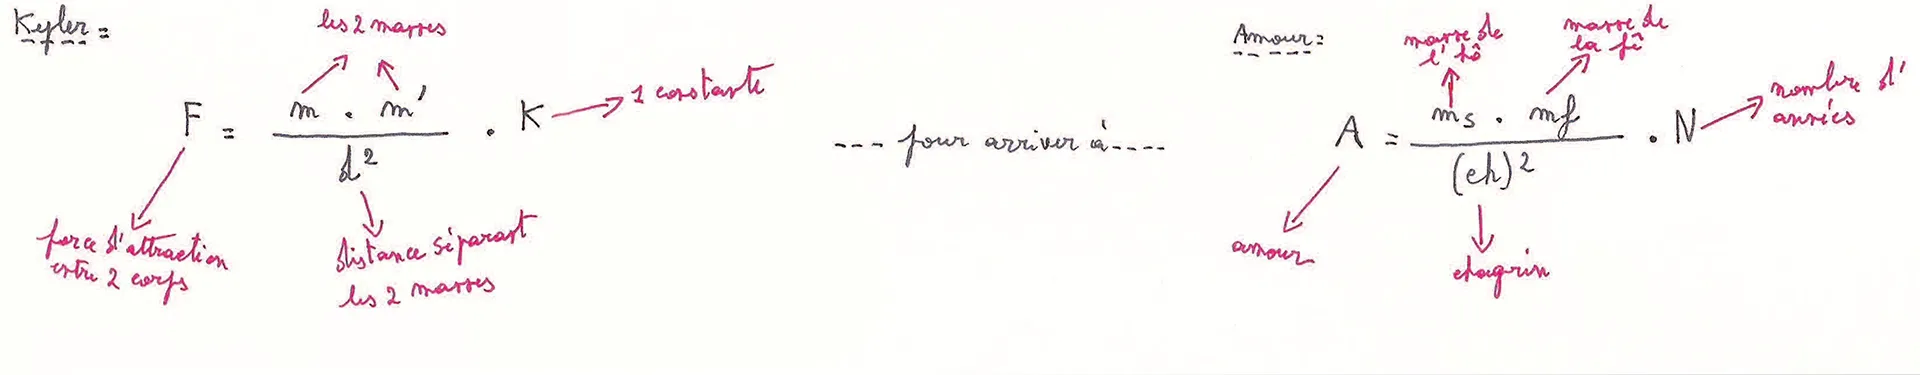 Kepler =
les 2 masses
F = m . m' / d² . K
1 constante
force d'attraction
entre 2 corps
distance séparant
les 2 masses
--- pour arriver à ----
Amour =
masse de
l'hô
masse de
la fê
A = ms . mf / (ch)² . N
nombre d'
années
amour
chagrin